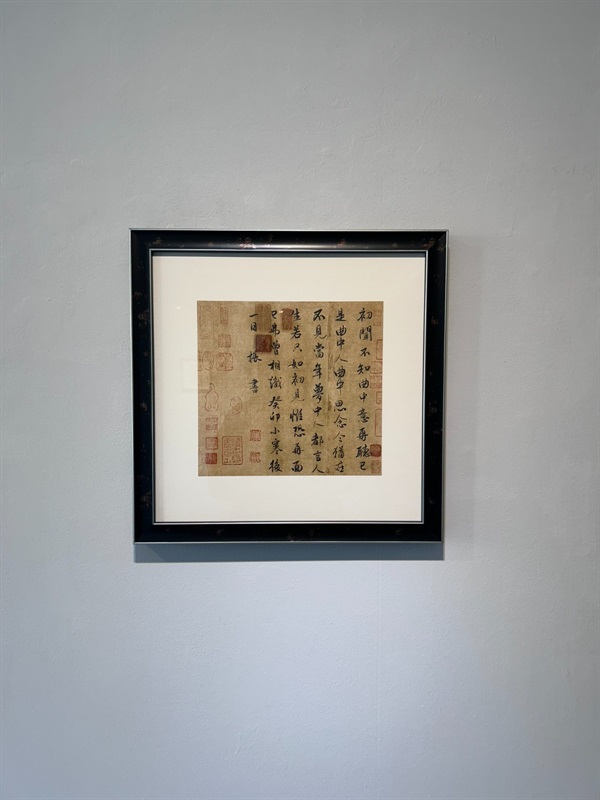 初聞不知曲中意再聽已
是曲中人曲中思念今猶在
不見當年夢中人都言人
生若只如初見惟恐再面
已弗曾相識癸卯小寒後
一日振書